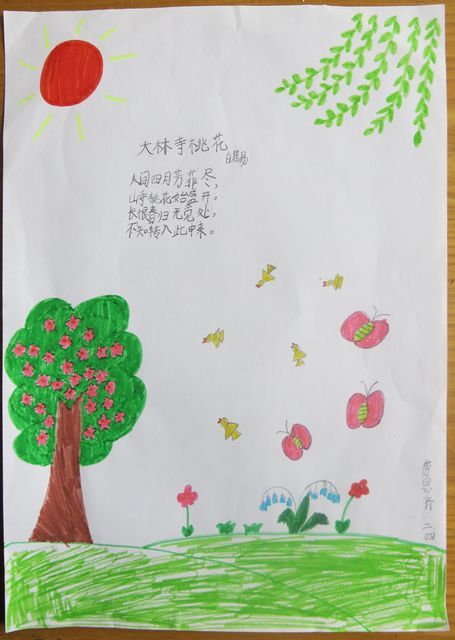 大林寺桃花
白居易
人间四月芳菲尽,
山寺桃花始盛开。
长恨春归无觅处,
不知转入此中来。
思齐 二四